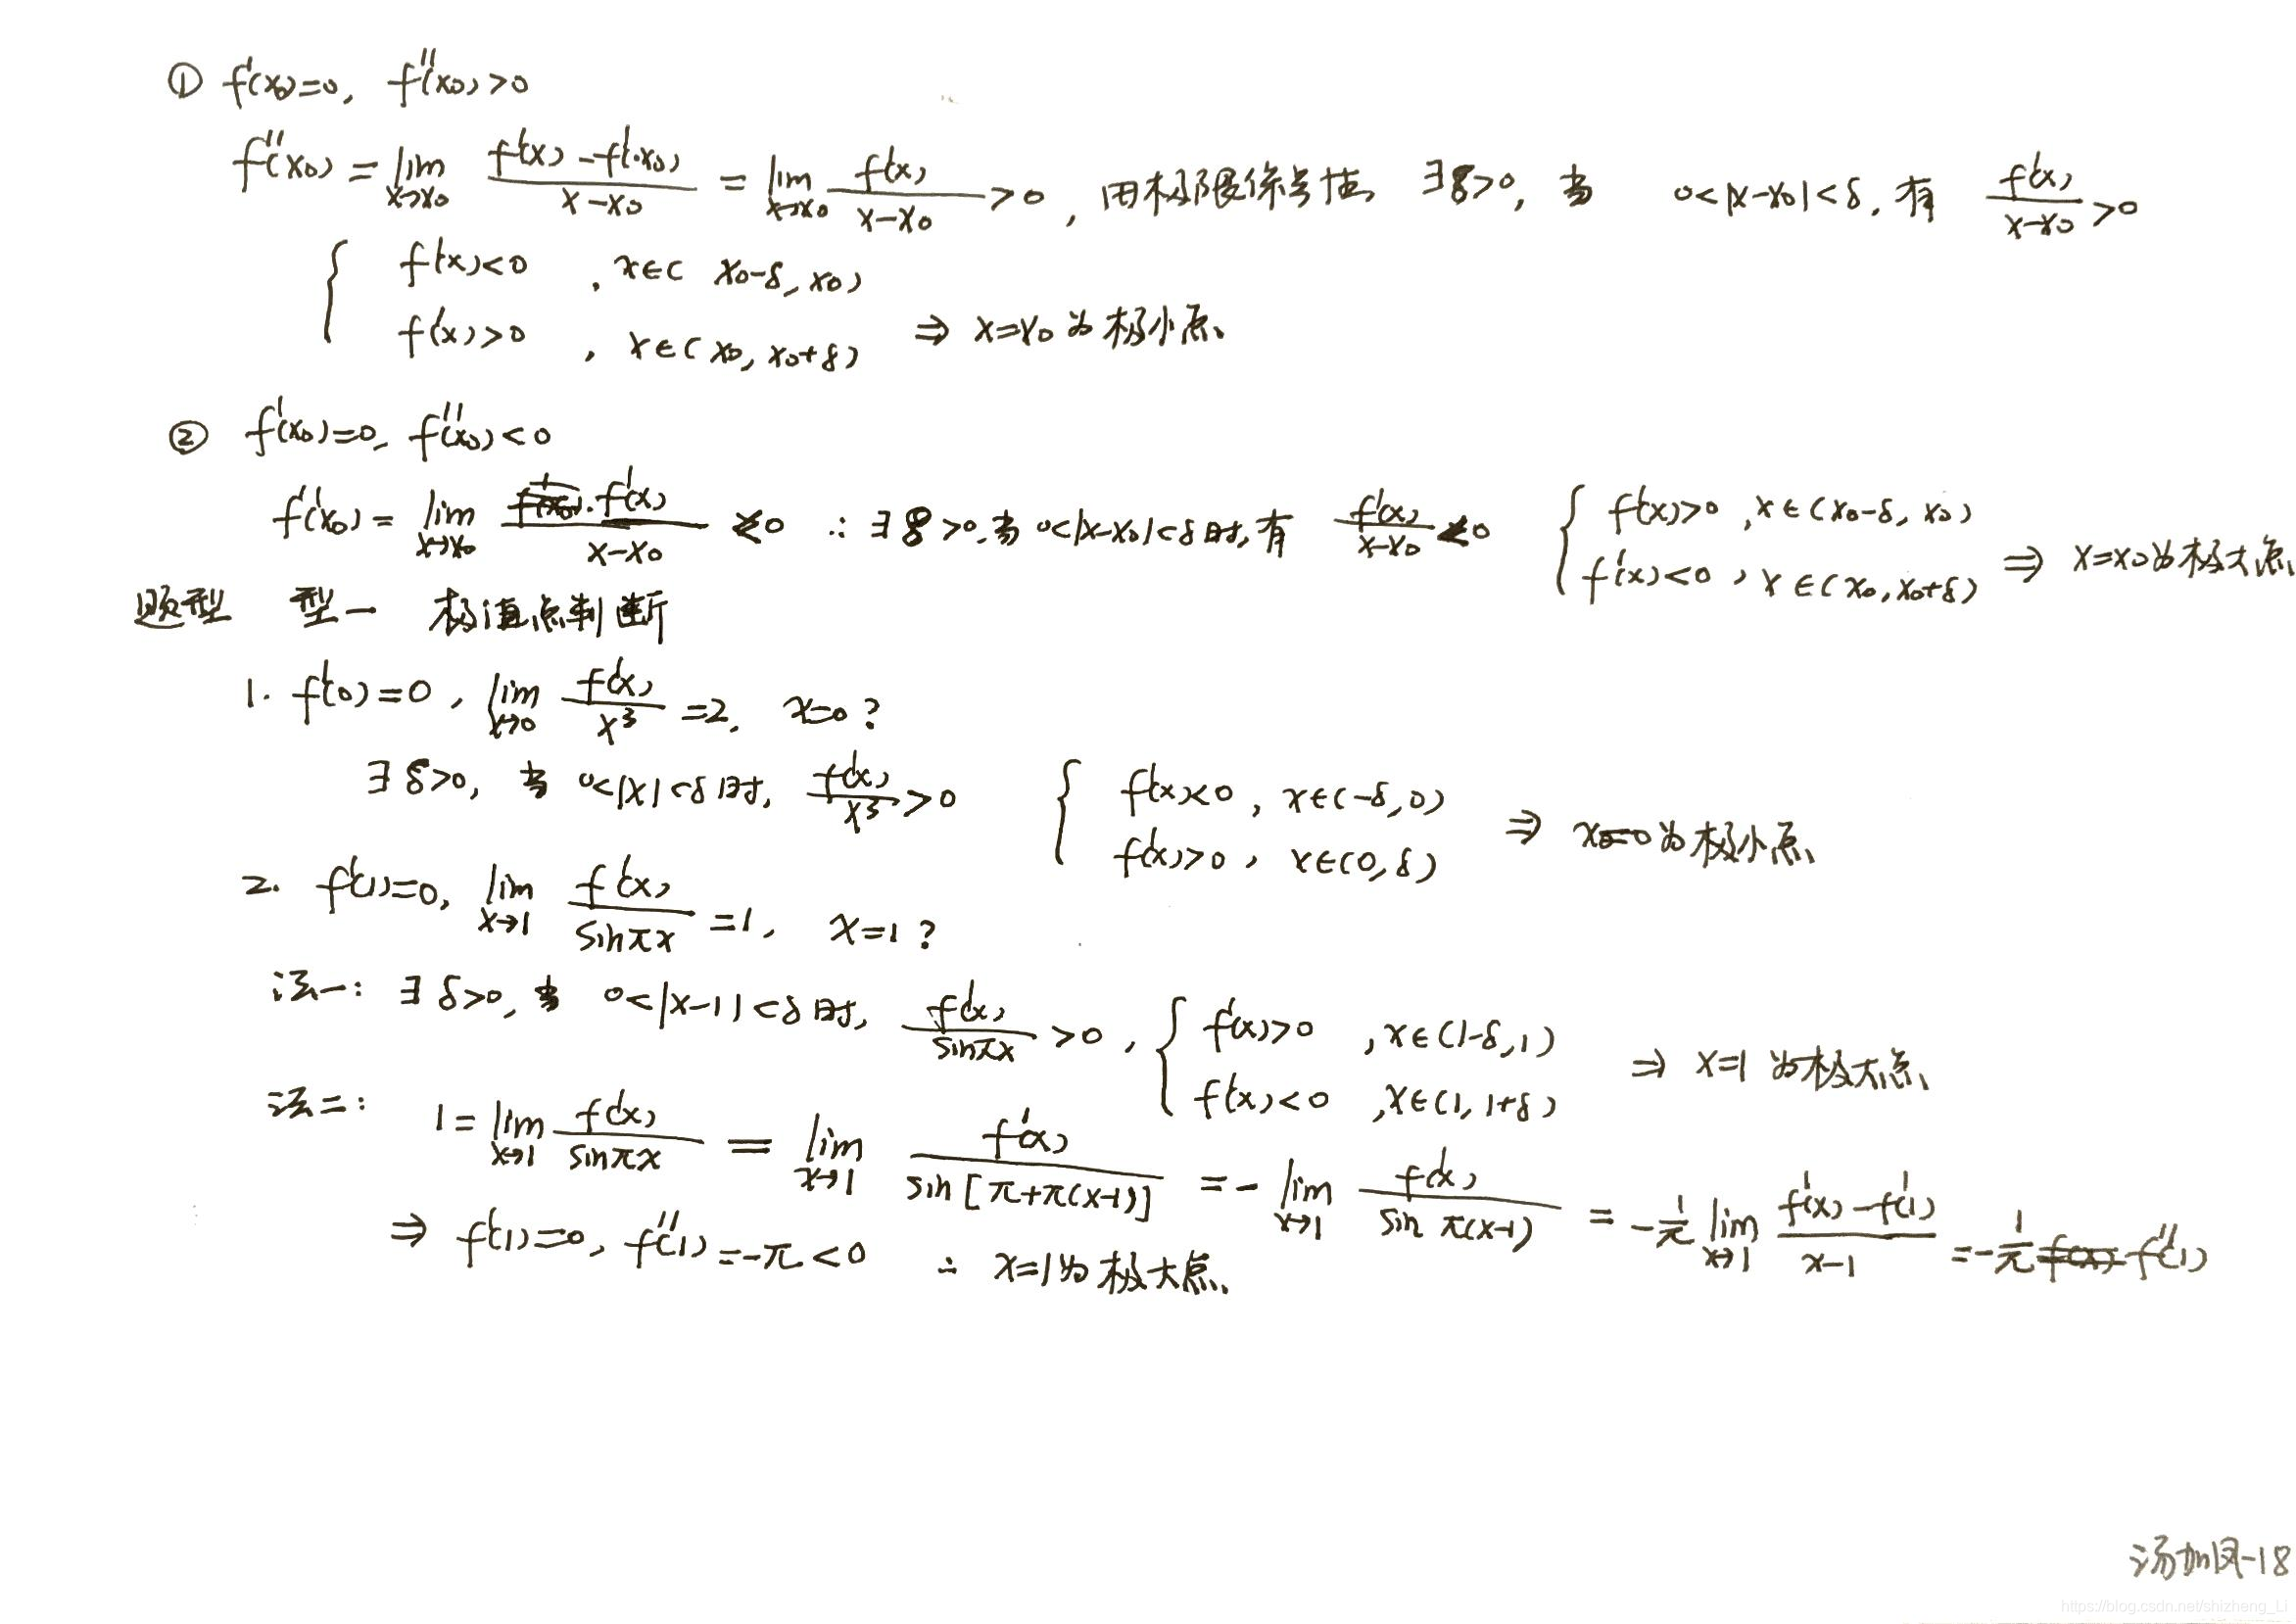 ① f'(x₀)=0, f''(x₀)>0
f''(x₀) = lim_{x→x₀} (f'(x)-f'(x₀))/(x-x₀) = lim_{x→x₀} f'(x)/(x-x₀) >0, 由极限保号性, ∃δ>0, 当 0<|x-x₀|<δ, 有 f'(x)/(x-x₀) >0
{ f'(x)<0 , x∈(x₀-δ, x₀)
f'(x)>0 , x∈(x₀, x₀+δ) ⇒ x=x₀为极小点
② f'(x₀)=0, f''(x₀)<0
f''(x₀) = lim_{x→x₀} f'(x)/(x-x₀) <0 ∴∃δ>0, 当0<|x-x₀|<δ时, 有 f'(x)/(x-x₀) <0 { f'(x)>0 , x∈(x₀-δ, x₀)
f'(x)<0 , x∈(x₀, x₀+δ) ⇒ x=x₀为极大点
题型 型一 极值点判断
1. f'(0)=0, lim_{x→0} f'(x)/x³ =2, x=0?
∃δ>0, 当 0<|x|<δ时, f'(x)/x³ >0 { f'(x)<0, x∈(-δ,0)
f'(x)>0, x∈(0,δ) ⇒ x=0为极小点
2. f'(1)=0, lim_{x→1} f'(x)/sinπx =1, x=1?
法一: ∃δ>0, 当 0<|x-1|<δ时, f'(x)/sinπx >0, { f'(x)>0 , x∈(1-δ,1)
f'(x)<0 , x∈(1, 1+δ) ⇒ x=1 为极大点
法二: 1 = lim_{x→1} f'(x)/sinπx = lim_{x→1} f'(x)/sin[π+π(x-1)] = -lim_{x→1} f'(x)/sin π(x-1) = -1/π lim_{x→1} (f'(x)-f'(1))/(x-1) = -1/π f''(1)
⇒ f'(1)=0, f''(1)=-π<0 ∴ x=1为极大点
汤加凤-18
https://blog.csdn.net/shizheng_Li